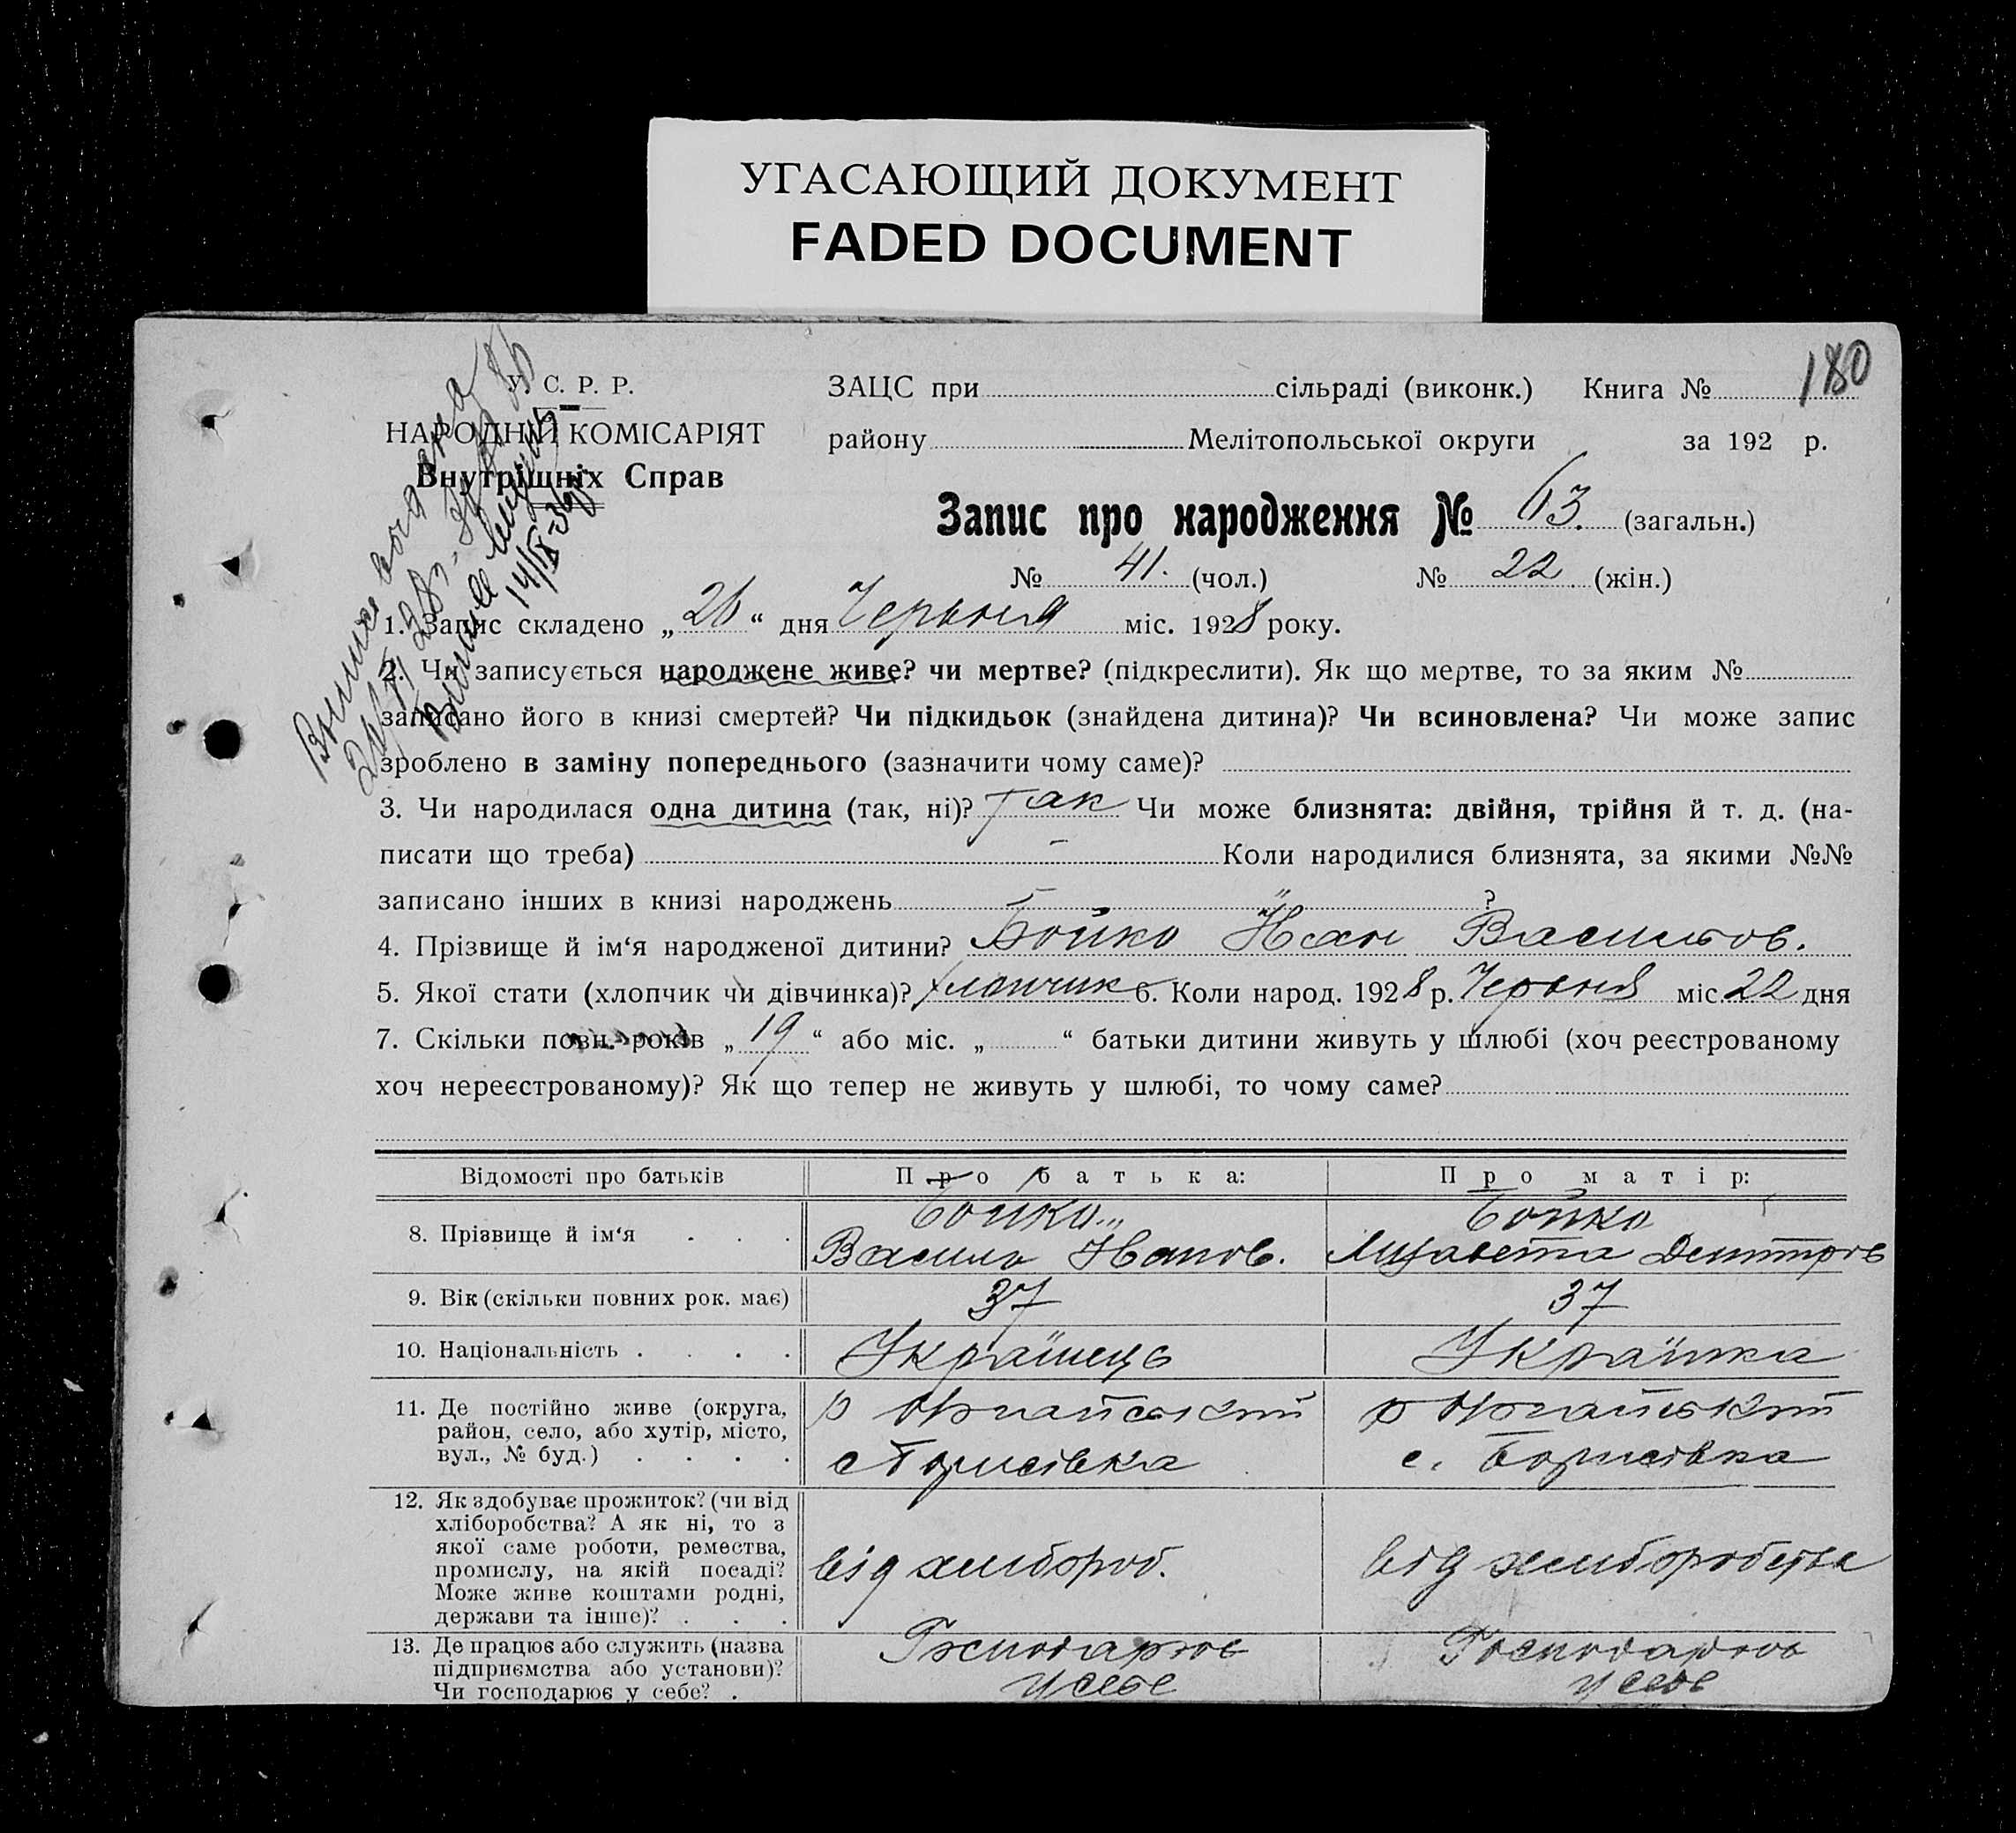 УГАСАЮЩИЙ ДОКУМЕНТ
FADED DOCUMENT
180
У. С. Р. Р.
НАРОДНІЙ КОМІСАРІЯТ
Внутрішніх Справ
ЗАЦС при сільраді (виконк.) Книга №
району Мелітопольської округи за 192 р.
Запис про народження № 63. (загальн.)
№ 41. (чол.) № 22 (жін.)
14/IX-36р.
1. Запис складено „26“ дня Червня міс. 1928 року.
2. Чи записується народжене живе? чи мертве? (підкреслити). Як що мертве, то за яким №
записано його в книзі смертей? Чи підкидьок (знайдена дитина)? Чи всиновлена? Чи може запис
зроблено в заміну попереднього (зазначити чому саме)?
3. Чи народилася одна дитина (так, ні)? Так Чи може близнята: двійня, трійня й т. д. (на-
писати що треба) – Коли народилися близнята, за якими №№
записано інших в книзі народжень „ ?
4. Прізвище й ім‘я народженої дитини? Бойко Йван Васильов.
5. Якої стати (хлопчик чи дівчинка)? хлопчик 6. Коли народ. 1928 р. Червня міс. 22 дня
7. Скільки повн. років „19“ або міс. „ “ батьки дитини живуть у шлюбі (хоч реєстрованому
хоч нереєстрованому)? Як що тепер не живуть у шлюбі, то чому саме?
Відомості про батьків Про батька: Про матір:
8. Прізвище й ім‘я . . . Бойко Василь Йванов. Бойко Лизавета Дмитров
9. Вік (скільки повних рок. має) 37 37
10. Національність . . . . Українець Українка
11. Де постійно живе (округа,
район, село, або хутір, місто,
вул., № буд.) . . . .
р с Борисівка
р с. Борисівка
12. Як здобуває прожиток? (чи від
хліборобства? А як ні, то з
якої саме роботи, ремества,
промислу, на якій посаді?
Може живе коштами родні,
держави та інше)? . . .
від хлибороб. від хлиборобства
13. Де працює або служить (назва
підприємства або установи)?
Чи господарює у себе? .
Господарює
у себе
Господарює
у себе